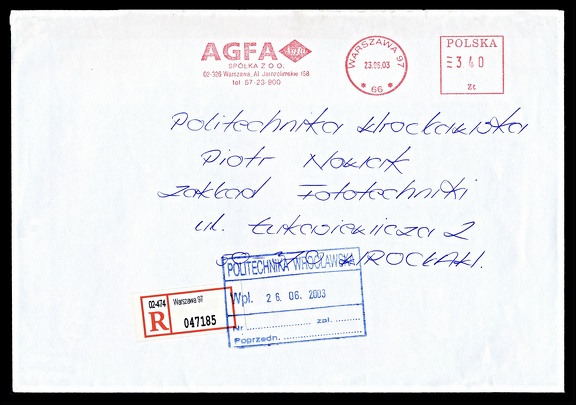 AGFA Agfa
SPÓŁKA Z O O.
02-326 Warszawa, Al Jerozolimskie 158
tel 57-23-900
WARSZAWA 97
23.06.03
66
POLSKA
340
Zł
Politechnika Wrocławska
Piotr Nowak
Zakład Fototechniki
ul. Łukasiewicza 2
50-370 WROCŁAW.
POLITECHNIKA WROCŁAWSKA
Wpł. 26. 06. 2003
Nr ................ zał. ........
Poprzedn. ................
02-474 Warszawa 97
R 047185